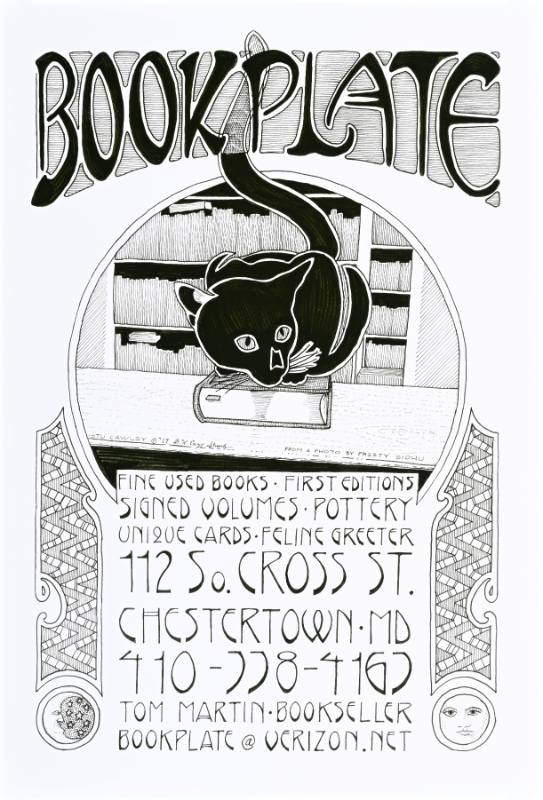 BOOKPLATE
STU CAWLEY © '17
FROM A PHOTO BY PREETY SIDHU
FINE USED BOOKS · FIRST EDITIONS
SIGNED VOLUMES · POTTERY
UNIQUE CARDS · FELINE GREETER
112 So. CROSS ST.
CHESTERTOWN · MD
410-778-4167
TOM MARTIN · BOOKSELLER
BOOKPLATE @ VERIZON.NET